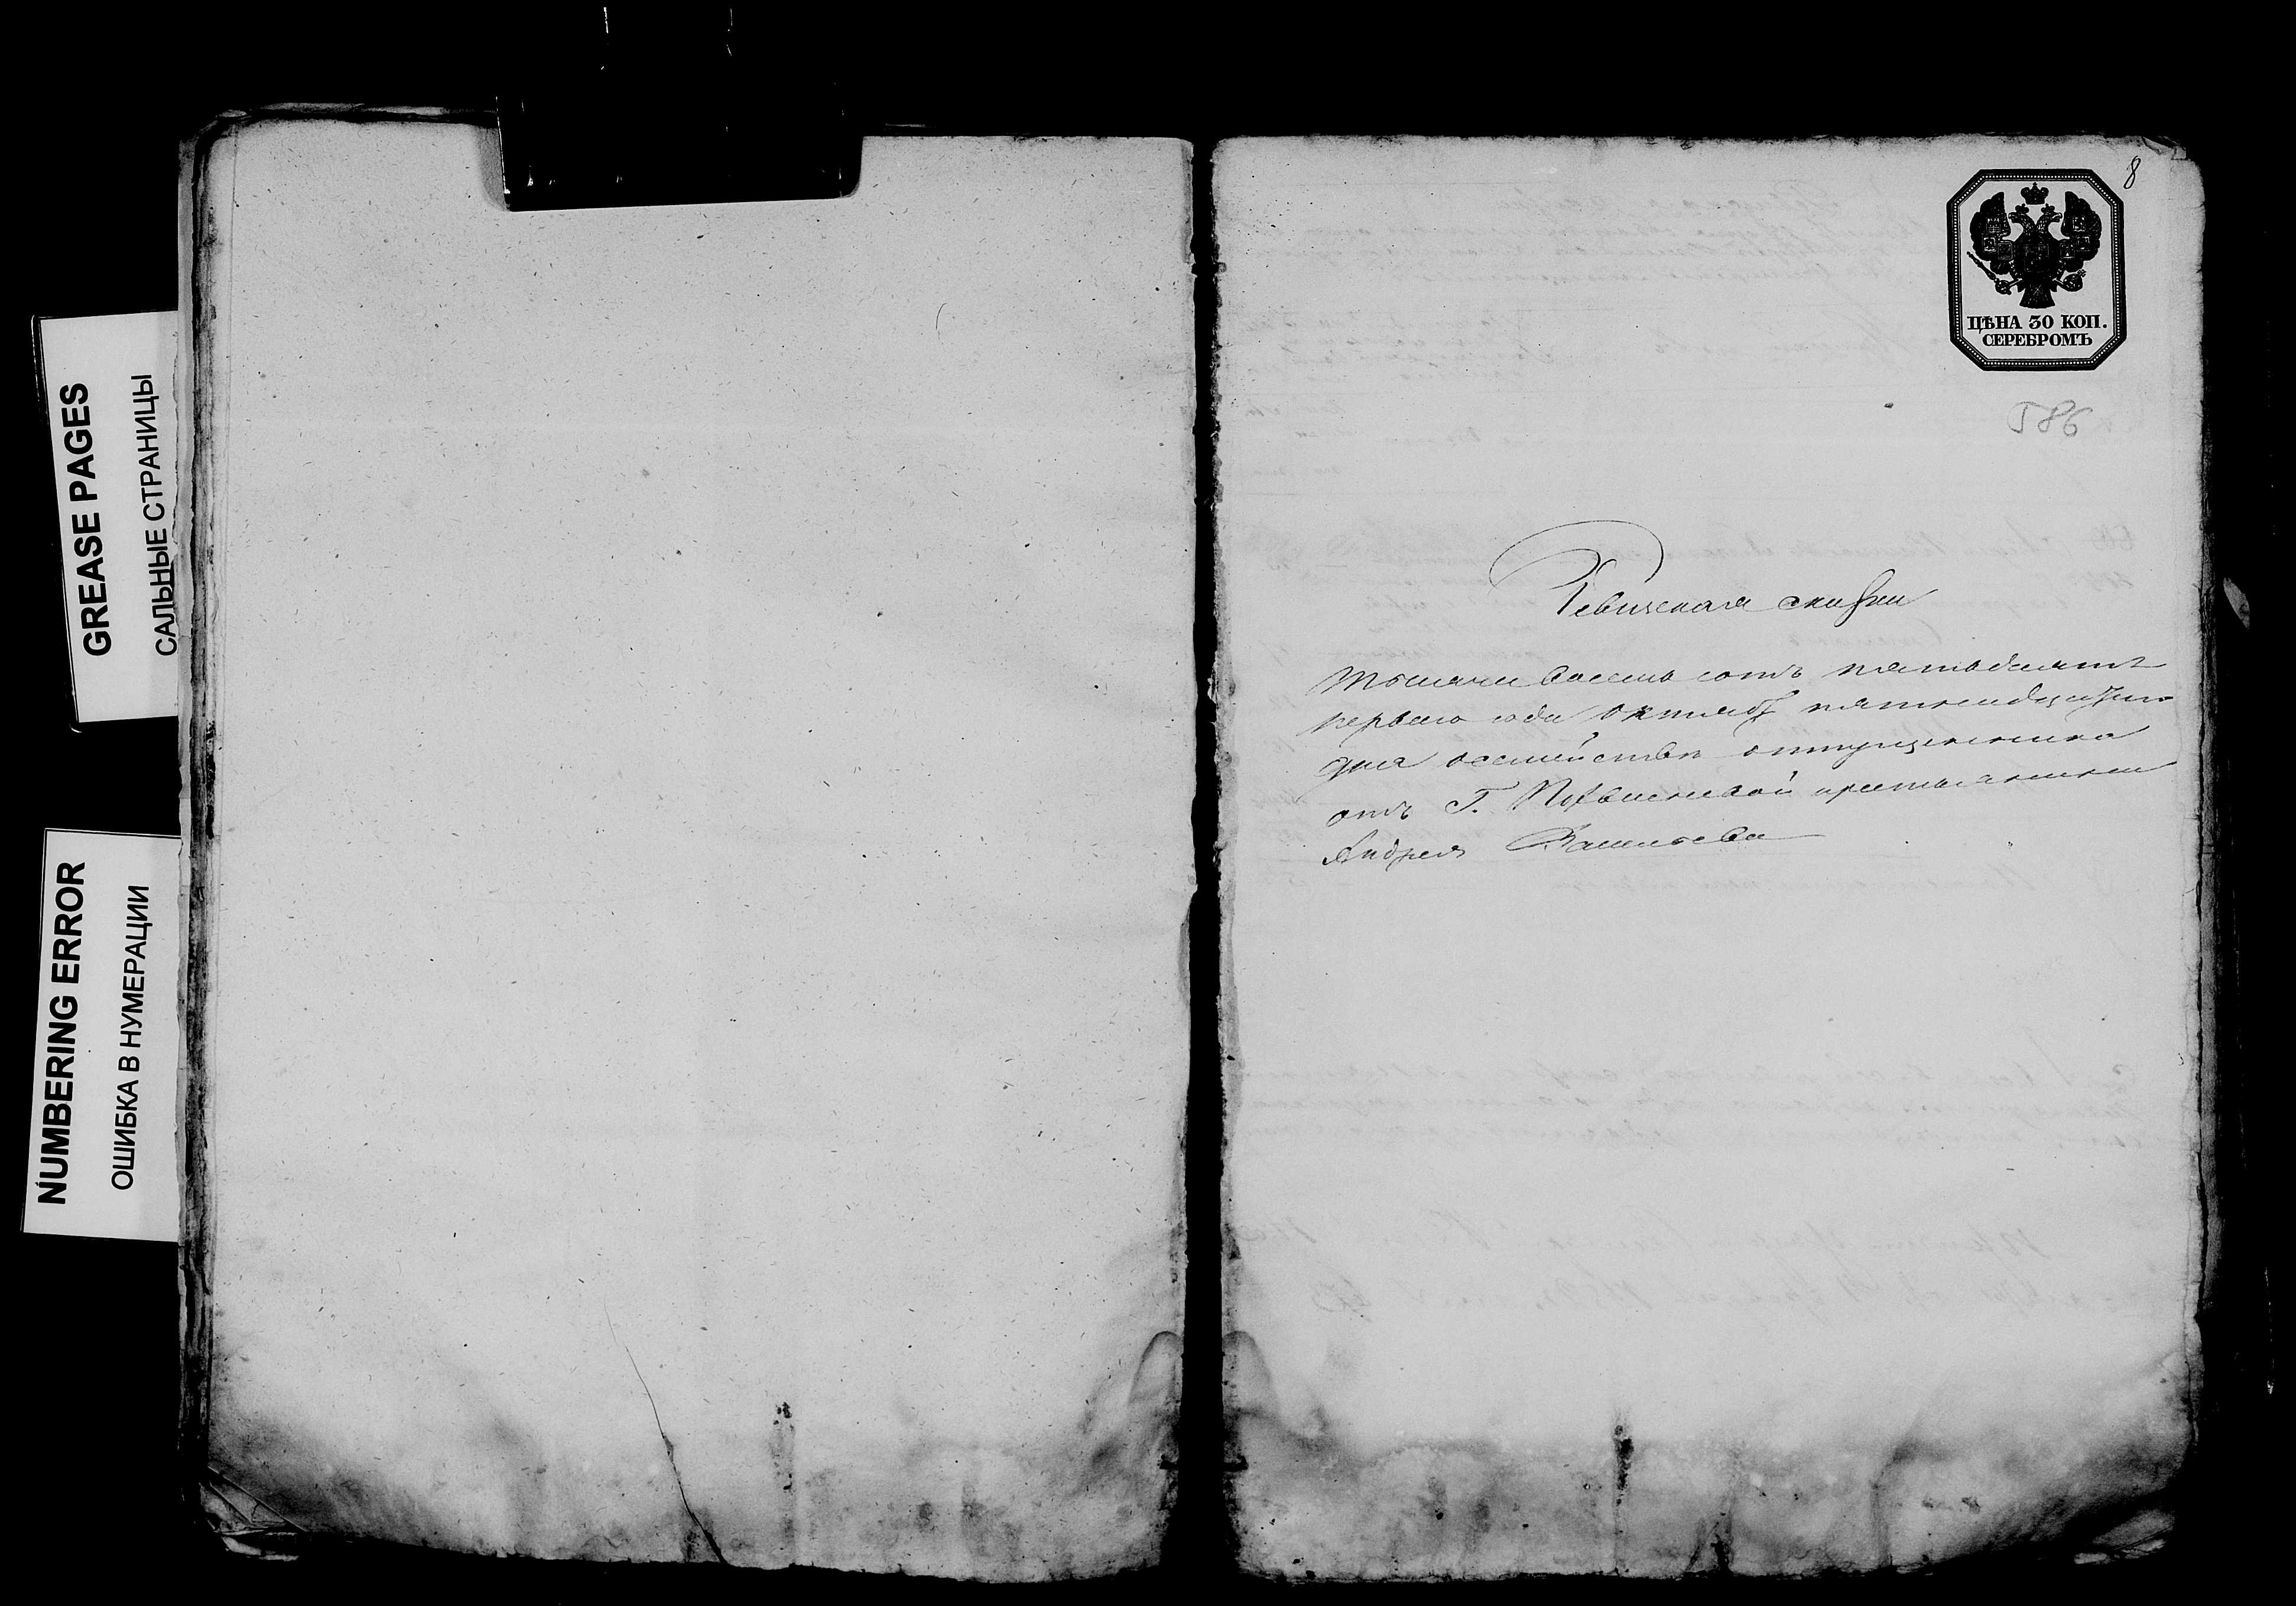 GREASE PAGES
САЛЬНЫЕ СТРАНИЦЫ
NUMBERING ERROR
ОШИБКА В НУМЕРАЦИИ
8
ЦѢНА 30 КОП.
СЕРЕБРОМЪ
586
Ревизская сказка
тысяча восемь сотъ пятьдесятъ
перваго года октября пятнадцатаго
дня о семействе отпущеннаго
отъ Г. крестьянина
Андрея Васильева